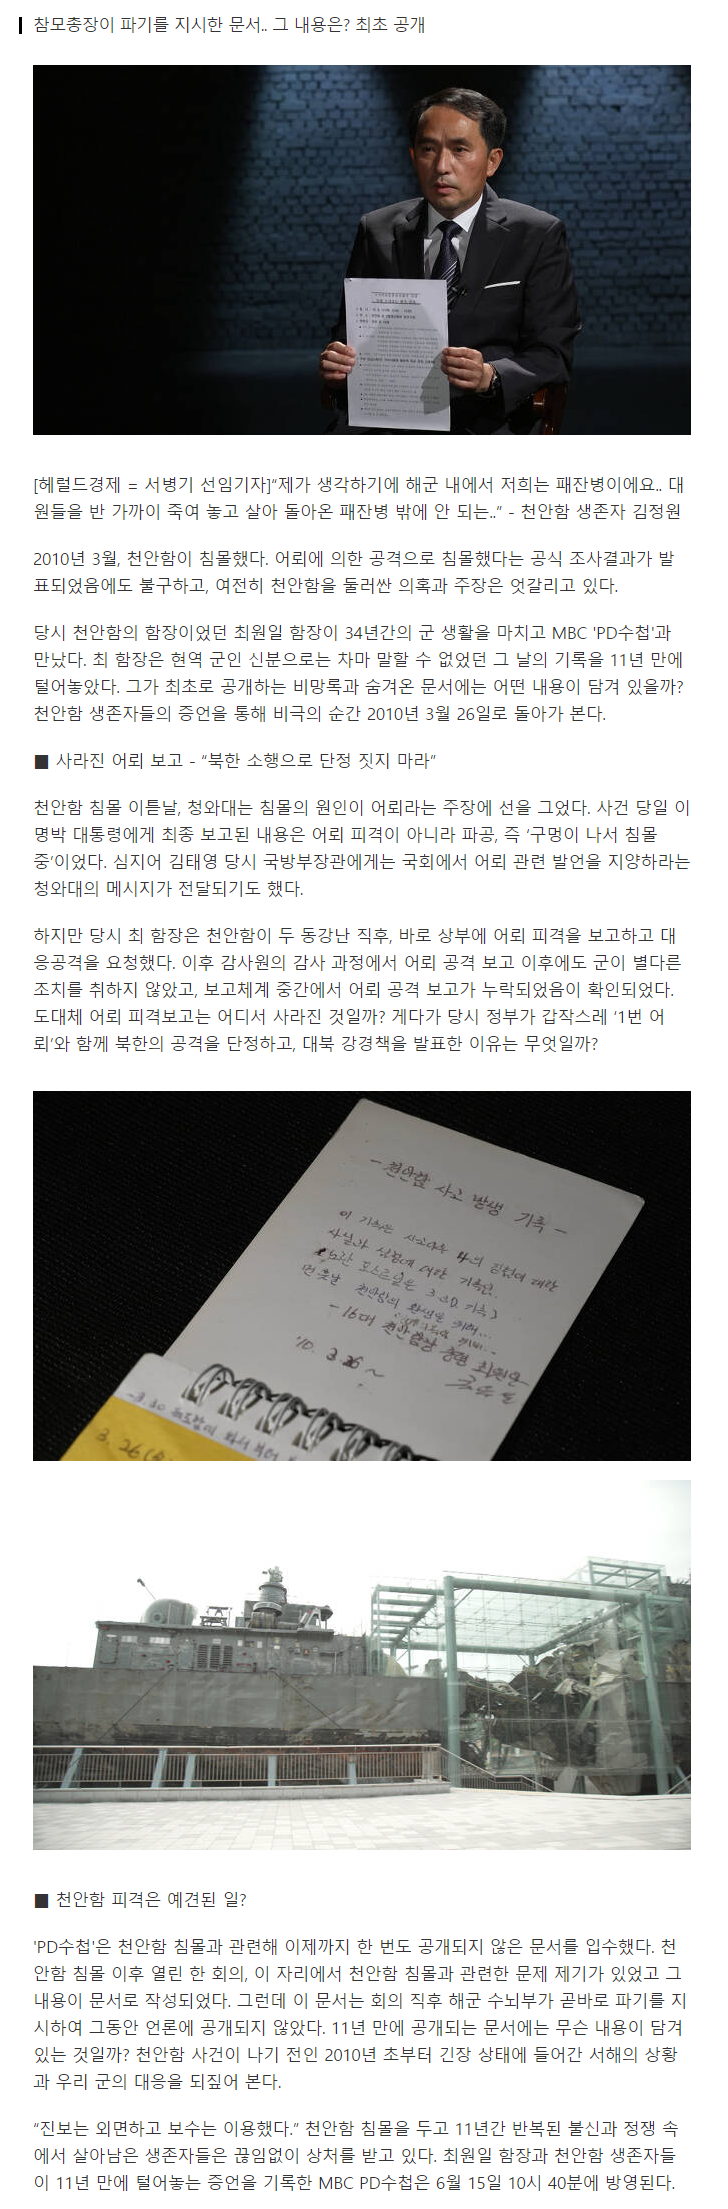 참모총장이 파기를 지시한 문서.. 그 내용은? 최초 공개
[헤럴드경제 = 서병기 선임기자]“제가 생각하기에 해군 내에서 저희는 패잔병이에요.. 대
원들을 반 가까이 죽여 놓고 살아 돌아온 패잔병 밖에 안 되는..” - 천안함 생존자 김정원
2010년 3월, 천안함이 침몰했다. 어뢰에 의한 공격으로 침몰했다는 공식 조사결과가 발
표되었음에도 불구하고, 여전히 천안함을 둘러싼 의혹과 주장은 엇갈리고 있다.
당시 천안함의 함장이었던 최원일 함장이 34년간의 군 생활을 마치고 MBC 'PD수첩'과
만났다. 최 함장은 현역 군인 신분으로는 차마 말할 수 없었던 그 날의 기록을 11년 만에
털어놓았다. 그가 최초로 공개하는 비망록과 숨겨온 문서에는 어떤 내용이 담겨 있을까?
천안함 생존자들의 증언을 통해 비극의 순간 2010년 3월 26일로 돌아가 본다.
■ 사라진 어뢰 보고 - “북한 소행으로 단정 짓지 마라”
천안함 침몰 이튿날, 청와대는 침몰의 원인이 어뢰라는 주장에 선을 그었다. 사건 당일 이
명박 대통령에게 최종 보고된 내용은 어뢰 피격이 아니라 파공, 즉 ‘구멍이 나서 침몰
중’이었다. 심지어 김태영 당시 국방부장관에게는 국회에서 어뢰 관련 발언을 지양하라는
청와대의 메시지가 전달되기도 했다.
하지만 당시 최 함장은 천안함이 두 동강난 직후, 바로 상부에 어뢰 피격을 보고하고 대
응공격을 요청했다. 이후 감사원의 감사 과정에서 어뢰 공격 보고 이후에도 군이 별다른
조치를 취하지 않았고, 보고체계 중간에서 어뢰 공격 보고가 누락되었음이 확인되었다.
도대체 어뢰 피격보고는 어디서 사라진 것일까? 게다가 당시 정부가 갑작스레 ‘1번 어
뢰’와 함께 북한의 공격을 단정하고, 대북 강경책을 발표한 이유는 무엇일까?
- 천안함 사고 발생 기록 -
이 기록은 사고이후 나의 집념에 대한
사실과 심정에 대한 기록임.
노란 포스트잇은 기록)
먼 훗날 천안함의 환생을 위해...
- 16대 천안함장 중령 최원일
'10. 3. 26 ~
3. 26
■ 천안함 피격은 예견된 일?
'PD수첩'은 천안함 침몰과 관련해 이제까지 한 번도 공개되지 않은 문서를 입수했다. 천
안함 침몰 이후 열린 한 회의, 이 자리에서 천안함 침몰과 관련한 문제 제기가 있었고 그
내용이 문서로 작성되었다. 그런데 이 문서는 회의 직후 해군 수뇌부가 곧바로 파기를 지
시하여 그동안 언론에 공개되지 않았다. 11년 만에 공개되는 문서에는 무슨 내용이 담겨
있는 것일까? 천안함 사건이 나기 전인 2010년 초부터 긴장 상태에 들어간 서해의 상황
과 우리 군의 대응을 되짚어 본다.
“진보는 외면하고 보수는 이용했다.” 천안함 침몰을 두고 11년간 반복된 불신과 정쟁 속
에서 살아남은 생존자들은 끊임없이 상처를 받고 있다. 최원일 함장과 천안함 생존자들
이 11년 만에 털어놓는 증언을 기록한 MBC PD수첩은 6월 15일 10시 40분에 방영된다.